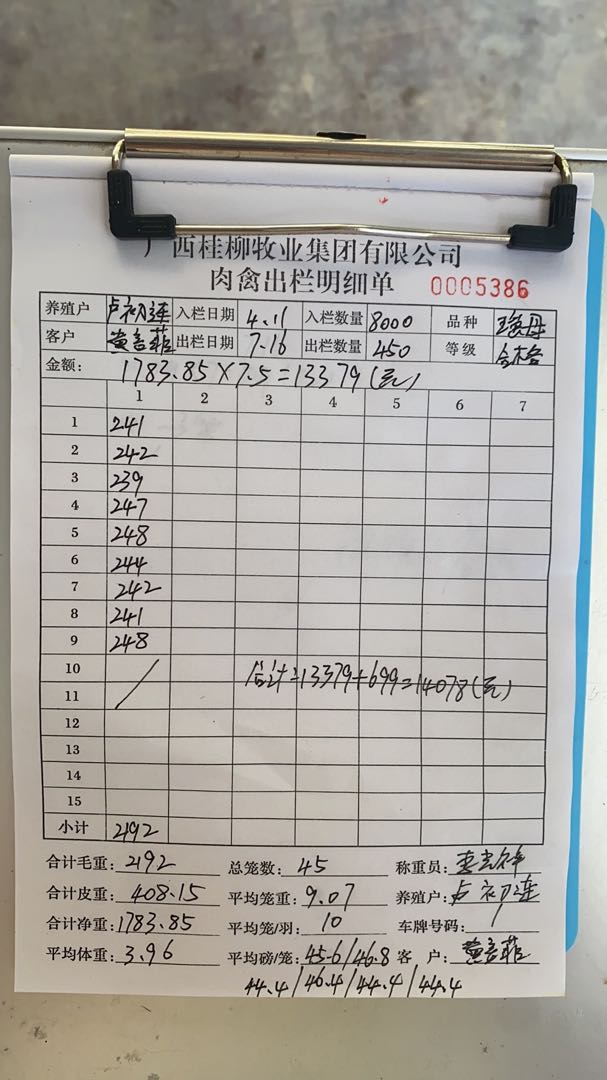 广西桂柳牧业集团有限公司
肉禽出栏明细单 0005386
养殖户 卢初连 入栏日期 4.11 入栏数量 8000 品种 瑶丹
客户 黄彦菲 出栏日期 7.16 出栏数量 450 等级 合格
金额: 1783.85×7.5=13379(元)
1 2 3 4 5 6 7
1 241
2 242
3 239
4 247
5 248
6 244
7 242
8 241
9 248
10 合计=13379+699=14078(元)
11
12
13
14
15
小计 2192
合计毛重: 2192 总笼数: 45 称重员:
合计皮重: 408.15 平均笼重: 9.07 养殖户: 卢初连
合计净重: 1783.85 平均笼/羽: 10 车牌号码: /
平均体重: 3.96 平均磅/笼: 45.6/46.8 客 户: 黄彦菲
44.4/46.4/44.4/44.4